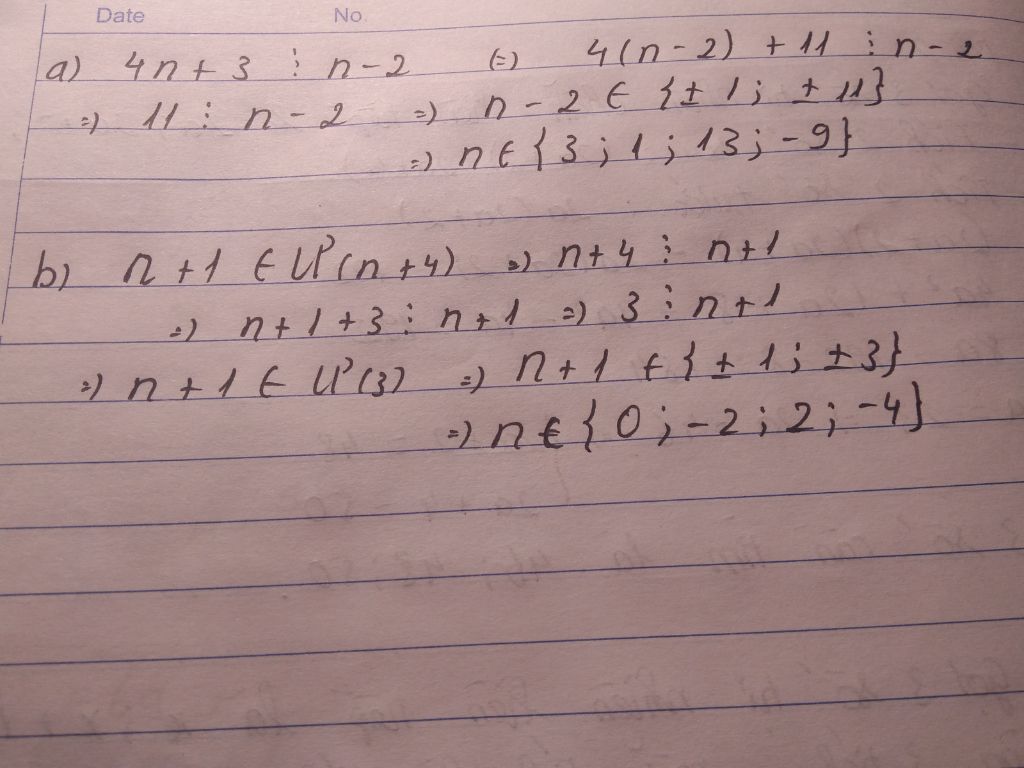 Date No
a) 4n + 3 ⋮ n - 2 (=) 4(n - 2) + 11 ⋮ n - 2
=) 11 ⋮ n - 2 =) n - 2 ∈ {± 1; ± 11}
=) n ∈ {3; 1; 13; -9}
b) n + 1 ∈ Ư(n + 4) =) n + 4 ⋮ n + 1
=) n + 1 + 3 ⋮ n + 1 =) 3 ⋮ n + 1
=) n + 1 ∈ Ư(3) =) n + 1 ∈ {± 1; ± 3}
=) n ∈ {0; -2; 2; -4}